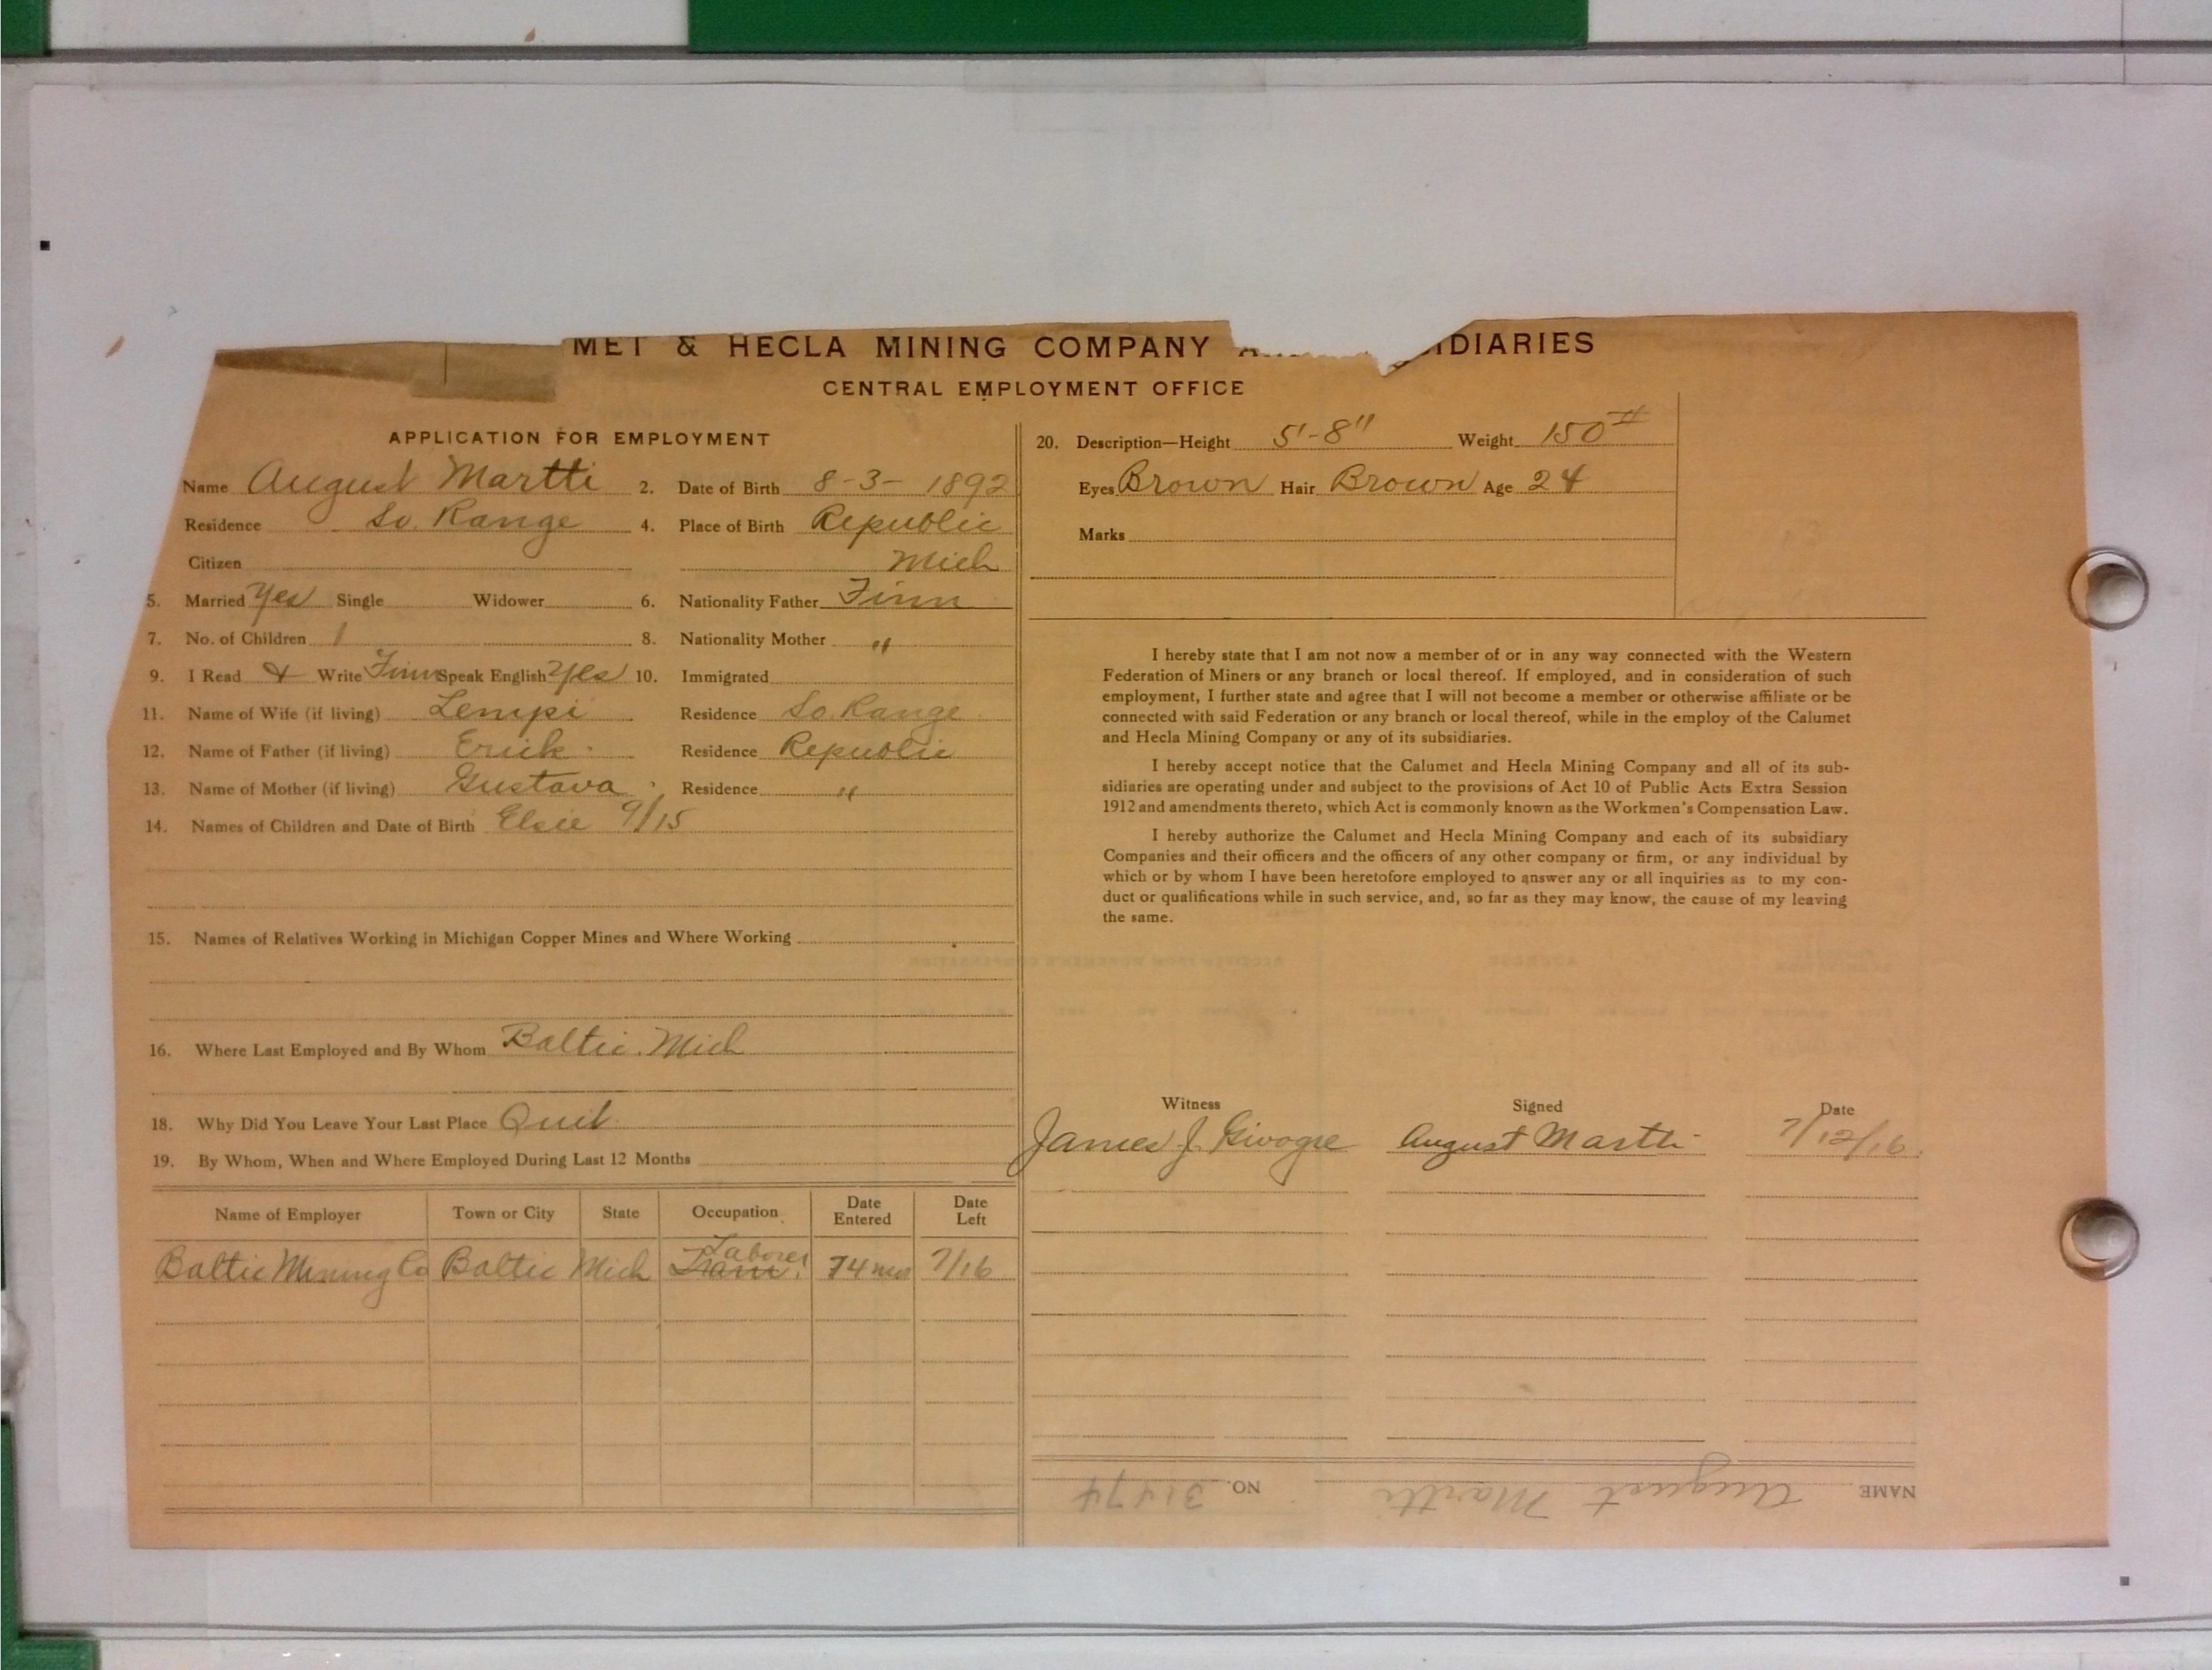 MET & HECLA MINING COMPANY A IDIARIES
CENTRAL EMPLOYMENT OFFICE
APPLICATION FOR EMPLOYMENT
Name August Martti 2. Date of Birth 8-3-1892
Residence So. Range 4. Place of Birth Republic
Citizen Mich
5. Married Yes Single Widower 6. Nationality Father Finn
7. No. of Children 1 8. Nationality Mother "
9. I Read & Write Finn Speak English Yes 10. Immigrated
11. Name of Wife (if living) Lempi Residence So. Range
12. Name of Father (if living) Erick Residence Republic
13. Name of Mother (if living) Gustava Residence "
14. Names of Children and Date of Birth Elsie 9/15
15. Names of Relatives Working in Michigan Copper Mines and Where Working
16. Where Last Employed and By Whom Baltic. Mich
18. Why Did You Leave Your Last Place Quit
19. By Whom, When and Where Employed During Last 12 Months
Name of Employer Town or City State Occupation Date Entered Date Left
Laborer
Baltic Mining Co Baltic Mich Tram 74 mos 7/16
20. Description—Height 5'-8" Weight 150#
Eyes Brown Hair Brown Age 24
Marks
I hereby state that I am not now a member of or in any way connected with the Western
Federation of Miners or any branch or local thereof. If employed, and in consideration of such
employment, I further state and agree that I will not become a member or otherwise affiliate or be
connected with said Federation or any branch or local thereof, while in the employ of the Calumet
and Hecla Mining Company or any of its subsidiaries.
I hereby accept notice that the Calumet and Hecla Mining Company and all of its sub-
sidiaries are operating under and subject to the provisions of Act 10 of Public Acts Extra Session
1912 and amendments thereto, which Act is commonly known as the Workmen's Compensation Law.
I hereby authorize the Calumet and Hecla Mining Company and each of its subsidiary
Companies and their officers and the officers of any other company or firm, or any individual by
which or by whom I have been heretofore employed to answer any or all inquiries as to my con-
duct or qualifications while in such service, and, so far as they may know, the cause of my leaving
the same.
Witness Signed Date
James J. August Martti 7/12/16
NAME August Martti NO. 31474